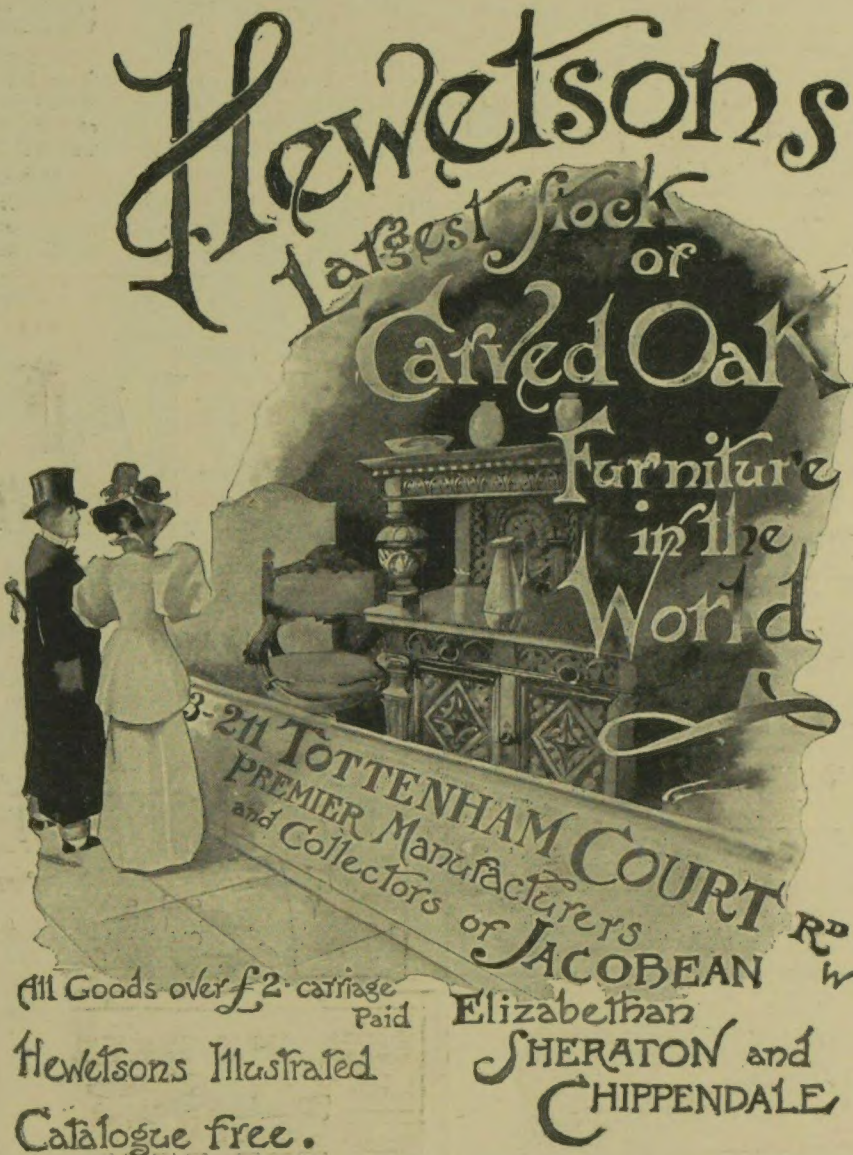 Hewetsons
Largest Stock
of
Carved Oak
Furniture
in the
World
3-211 TOTTENHAM COURT RD
W
PREMIER Manufacturers
and Collectors of JACOBEAN
Elizabethan
SHERATON and
CHIPPENDALE
All Goods over £2 carriage
Paid
Hewetsons Illustrated
Catalogue free.